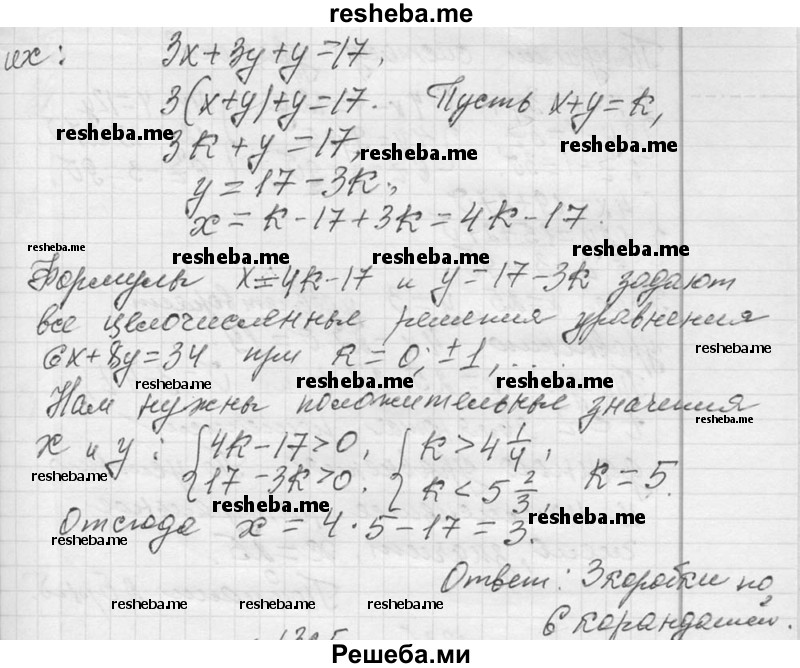 resheba.me
их: 3x+3y+y=17,
3(x+y)+y=17. Пусть x+y=k,
resheba.me resheba.me
3k+y=17,
resheba.me
y=17-3k;
x=k-17+3k=4k-17.
resheba.me resheba.me resheba.me resheba.me
Формулы x=4k-17 и y=17-3k задают
все целочисленные решения уравнения
resheba.me
6x+8y=34 при k=0; ±1, ...
resheba.me resheba.me resheba.me
Нам нужны положительные значения
resheba.me
x и y: {4k-17>0, {k>4 1/4,
{17-3k>0. {k<5 2/3, k=5.
resheba.me resheba.me resheba.me
Отсюда x=4·5-17=3.
resheba.me
Ответ: 3 коробки по
resheba.me resheba.me resheba.me resheba.me
6 карандашей.
Решеба.ми